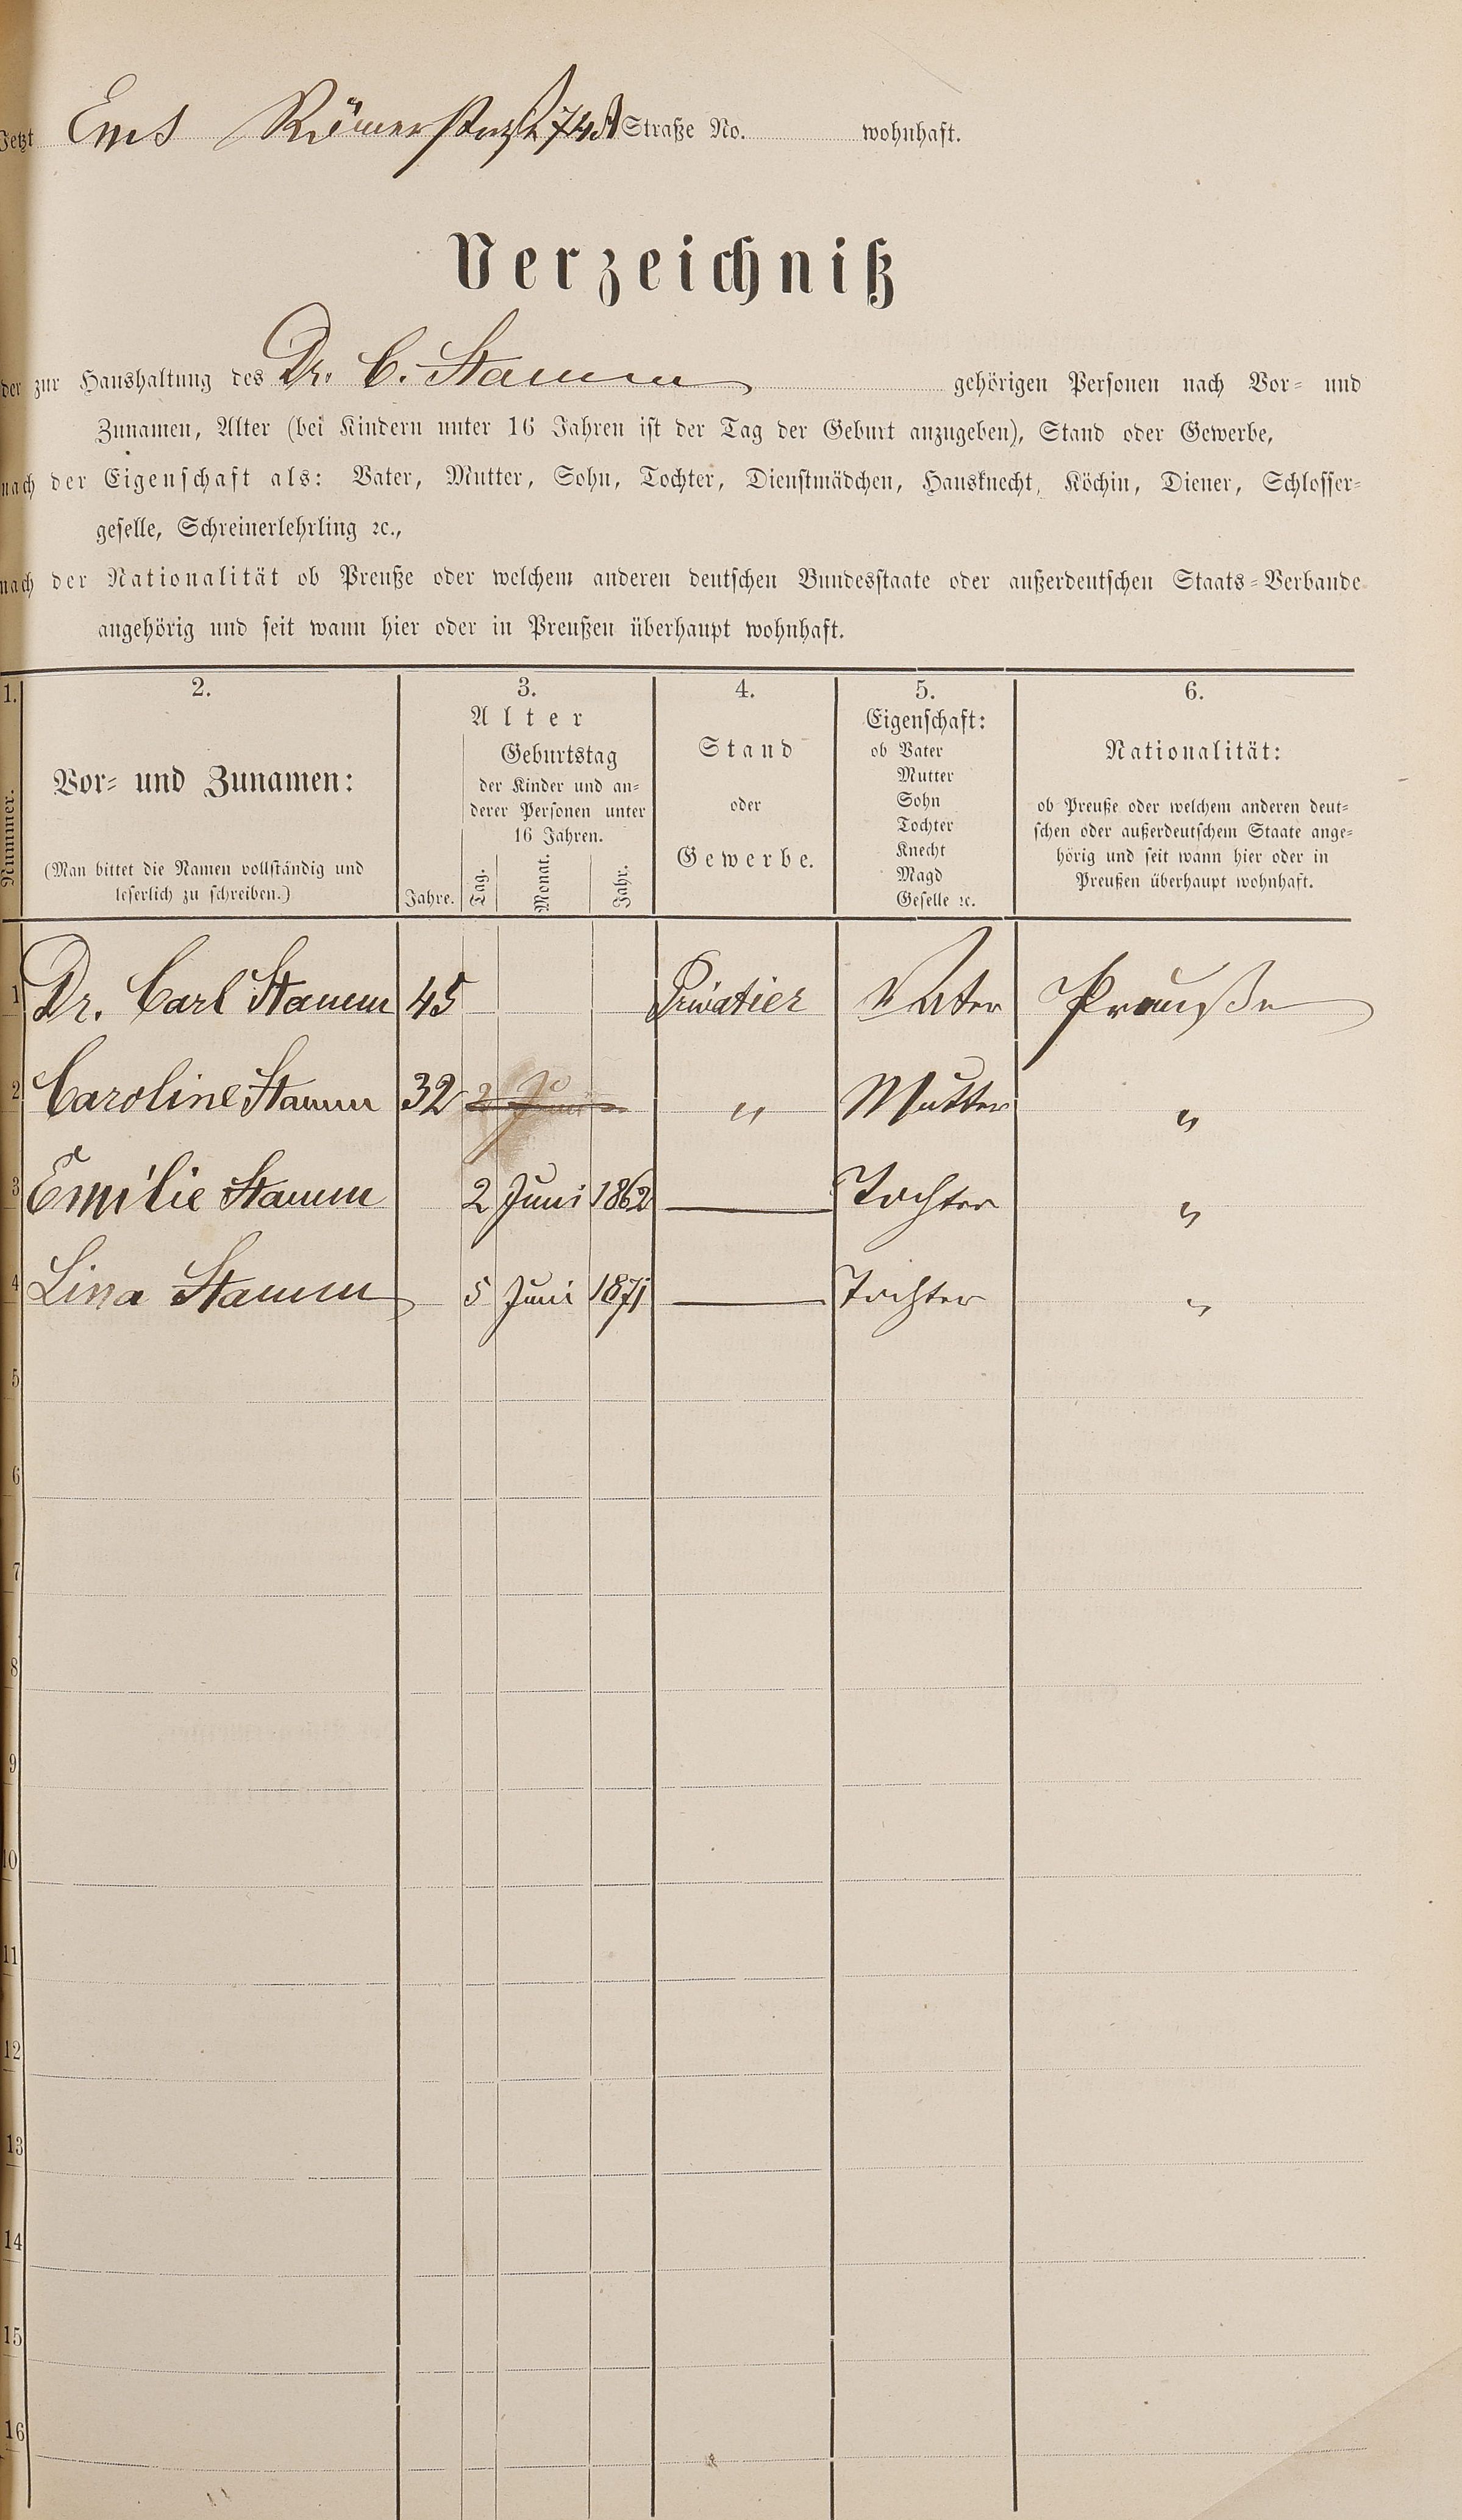 Jetzt Ems Römerstraße 74A Straße No. wohnhaft.
Verzeichniß
der zur Haushaltung des Dr. C. Stamm gehörigen Personen nach Vor- und
Zunamen, Alter (bei Kindern unter 16 Jahren ist der Tag der Geburt anzugeben), Stand oder Gewerbe,
nach der Eigenschaft als: Vater, Mutter, Sohn, Tochter, Dienstmädchen, Hausknecht, Köchin, Diener, Schlosser-
geselle, Schreinerlehrling ꝛc.,
nach der Nationalität ob Preuße oder welchem anderen deutschen Bundesstaate oder außerdeutschen Staats-Verbande
angehörig und seit wann hier oder in Preußen überhaupt wohnhaft.
1.
Nummer.
2.
Vor- und Zunamen:
(Man bittet die Namen vollständig und
leserlich zu schreiben.)
3.
Alter
Jahre.
Geburtstag
der Kinder und an-
derer Personen unter
16 Jahren.
Tag. Monat. Jahr.
4.
Stand
oder
Gewerbe.
5.
Eigenschaft:
ob Vater
Mutter
Sohn
Tochter
Knecht
Magd
Geselle ꝛc.
6.
Nationalität:
ob Preuße oder welchem anderen deut-
schen oder außerdeutschem Staate ange-
hörig und seit wann hier oder in
Preußen überhaupt wohnhaft.
1 Dr. Carl Stamm 45 Privatier Vater Preuße
2 Caroline Stamm 32 2 Juni " Mutter "
3 Emilie Stamm 2 Juni 1862 — Tochter "
4 Lina Stamm 5 Juni 1871 — Tochter "
5
6
7
8
9
10
11
12
13
14
15
16